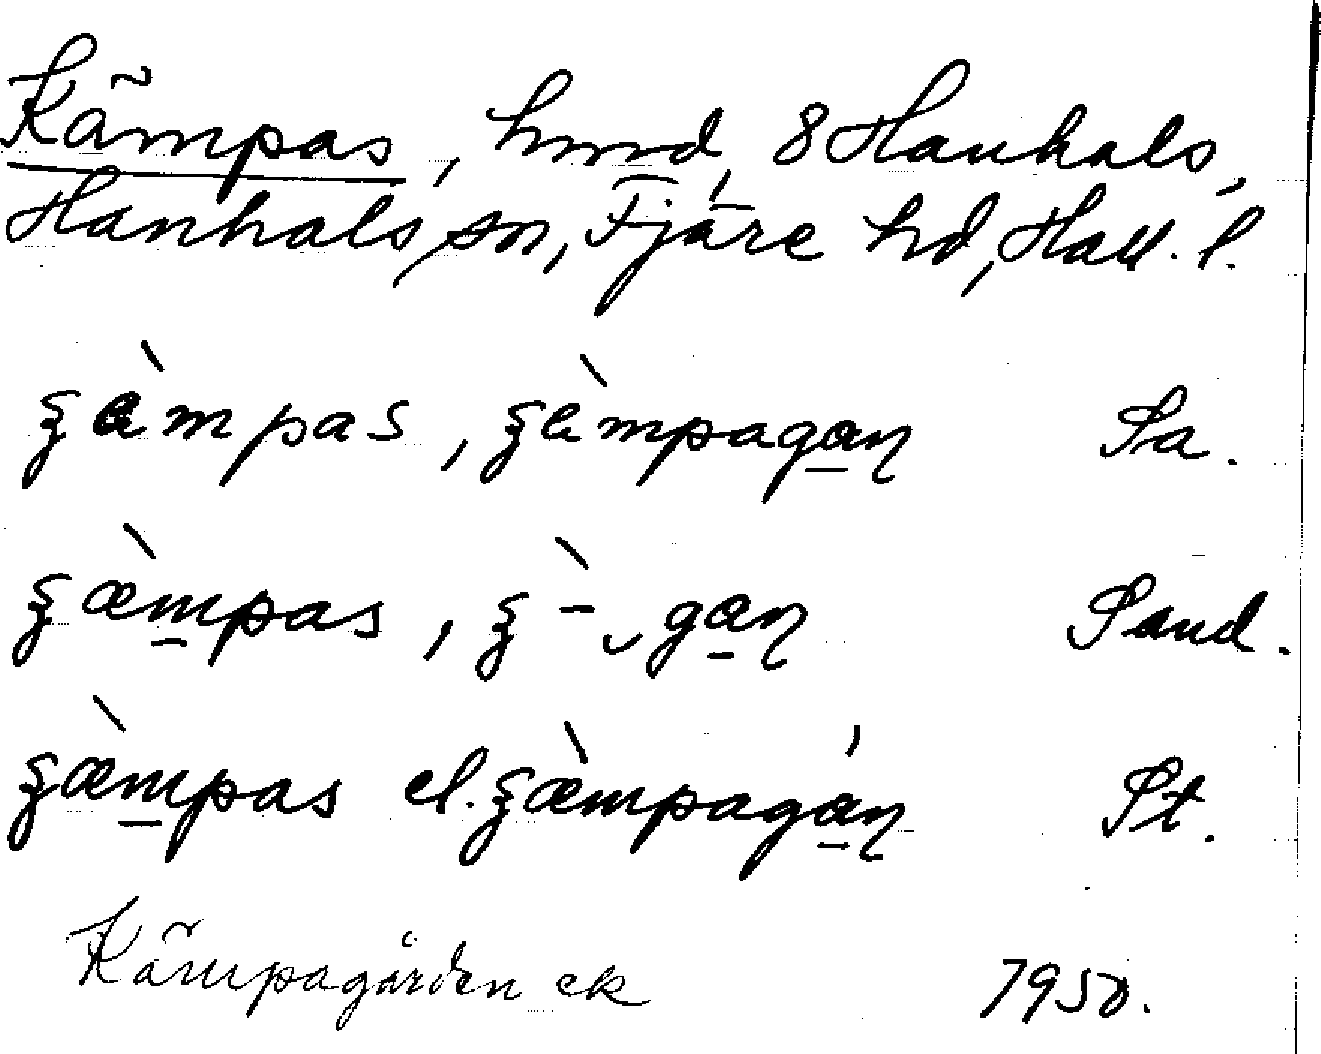 Kämpas, hmd, 8 Hanhals,
Hanhals sn, Fjäre hd, Hall. l.
ʒàmpas, ʒàmpagaɳ Sa.
ʒæ̀mpas, ʒ –̀ ᴗ gaɳ Sand.
ʒæ̀mpas el. ʒæ̀mpagáɳ St.
Kämpagården ek 1950.